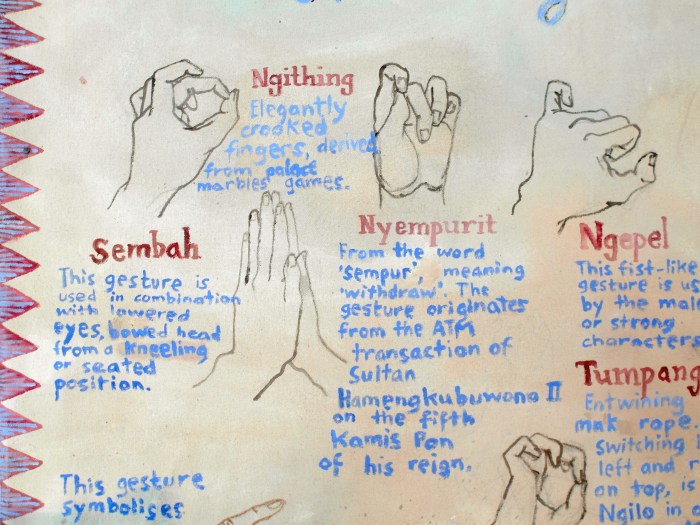 Ngithing
Elegantly
crooked
fingers, derived
from palace
marbles games.
Sembah
This gesture is
used in combination
with lowered
eyes, bowed head
from a kneeling
or seated
position.
Nyempurit
From the word
'sempur', meaning
'withdraw'. The
gesture originates
from the ATM
transaction of
Sultan
Hamengkubuwono II
on the fifth
Kamis Pon
of his reign.
Ngepel
This fist-like
gesture is us
by the mal
or strong
characters
Tumpang
Entwining
mak rope.
Switching i
left and r
on top, is
Ngilo in
This gesture
symbolises